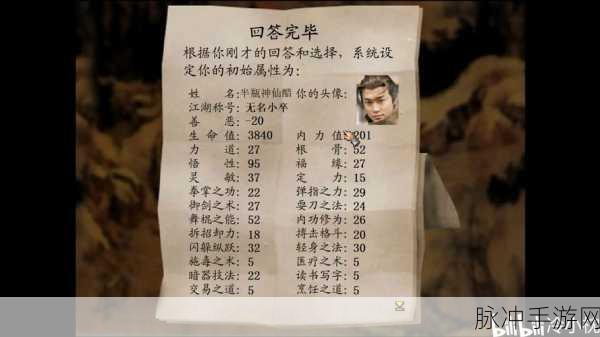 回答完毕
根据你刚才的回答和选择，系统设
定你的初始属性为：
姓 名:半瓶神仙醋 你的头像:
江湖称号: 无名小卒
善 恶: -20
生 命 值: 3840 内 力 值: 201
力 道: 27 根 骨: 52
悟 性: 95 福 缘: 27
灵 敏: 37 定 力: 15
拳掌之功: 22 弹指之力: 29
御剑之术: 27 耍刀之法: 24
舞棍之能: 52 内功修为: 26
拆招卸力: 18 搏击格斗: 20
闪躲纵跃: 32 轻身之法: 30
施毒之术: 5 医疗之术: 5
暗器技法: 22 读书写字: 5
交易之道: 5 烹饪之道: 5
脉冲手游网
bilibili